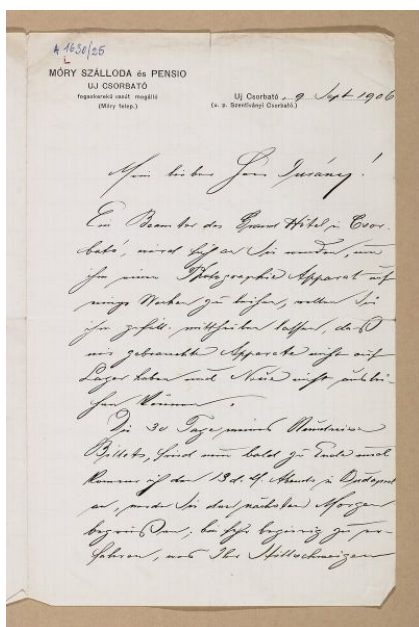 A 1630/25
MÓRY SZÁLLODA és PENSIO
UJ CSORBATÓ
fogaskerekű vasút megálló
(Móry telep.)
Uj Csorbató, 9 Sept 1906
(u. p. Szentiványi Csorbató.)
Mein lieber Herr Durányi!
Ein Beamter des Grand Hôtel in Csor-
bató, wird sich an Sie wenden, um
ihm einen Photographie Apparat auf
einige Wochen zu leihen, wollen Sie
ihm gefäll. mittheilen lassen, daß
wir gebrauchte Apparate nicht auf
Lager haben und Neue nicht auslei-
hen können.
Die 30 Tage meines Rundreise
Billets, sind nun bald zu Ende und
komme ich den 13 d. M. Abends in Budapest
an, werde Sie den nächsten Morgen
begrüßen; bin sehr begierig zu er-
fahren, was Ihr Stillschweigen